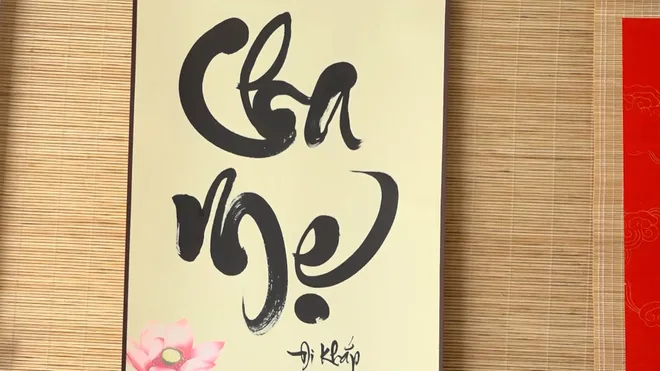 Cha
Mẹ
Đi khắp